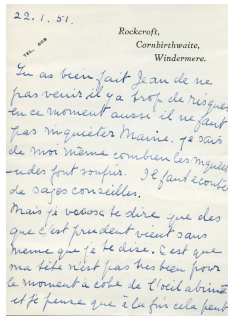 22.1.51.
TEL. 609
Rockcroft,
Cornbirthwaite,
Windermere.
Tu as bien fait Jean de ne
pas venir il y a trop de risques
en ce moment aussi il ne faut
pas inquièter Maine. je sais
de moi même combien les inquiét
-udes font souffrir. Il faut écouter
de sages conseilles.
Mais je veux te dire que dès
que c'est prudent vient sans
même que je te dise. C'est que
ma tête n'est pas très bien pour
le moment à côté de l'oeil abimé
et je pense que à la fin cela peut